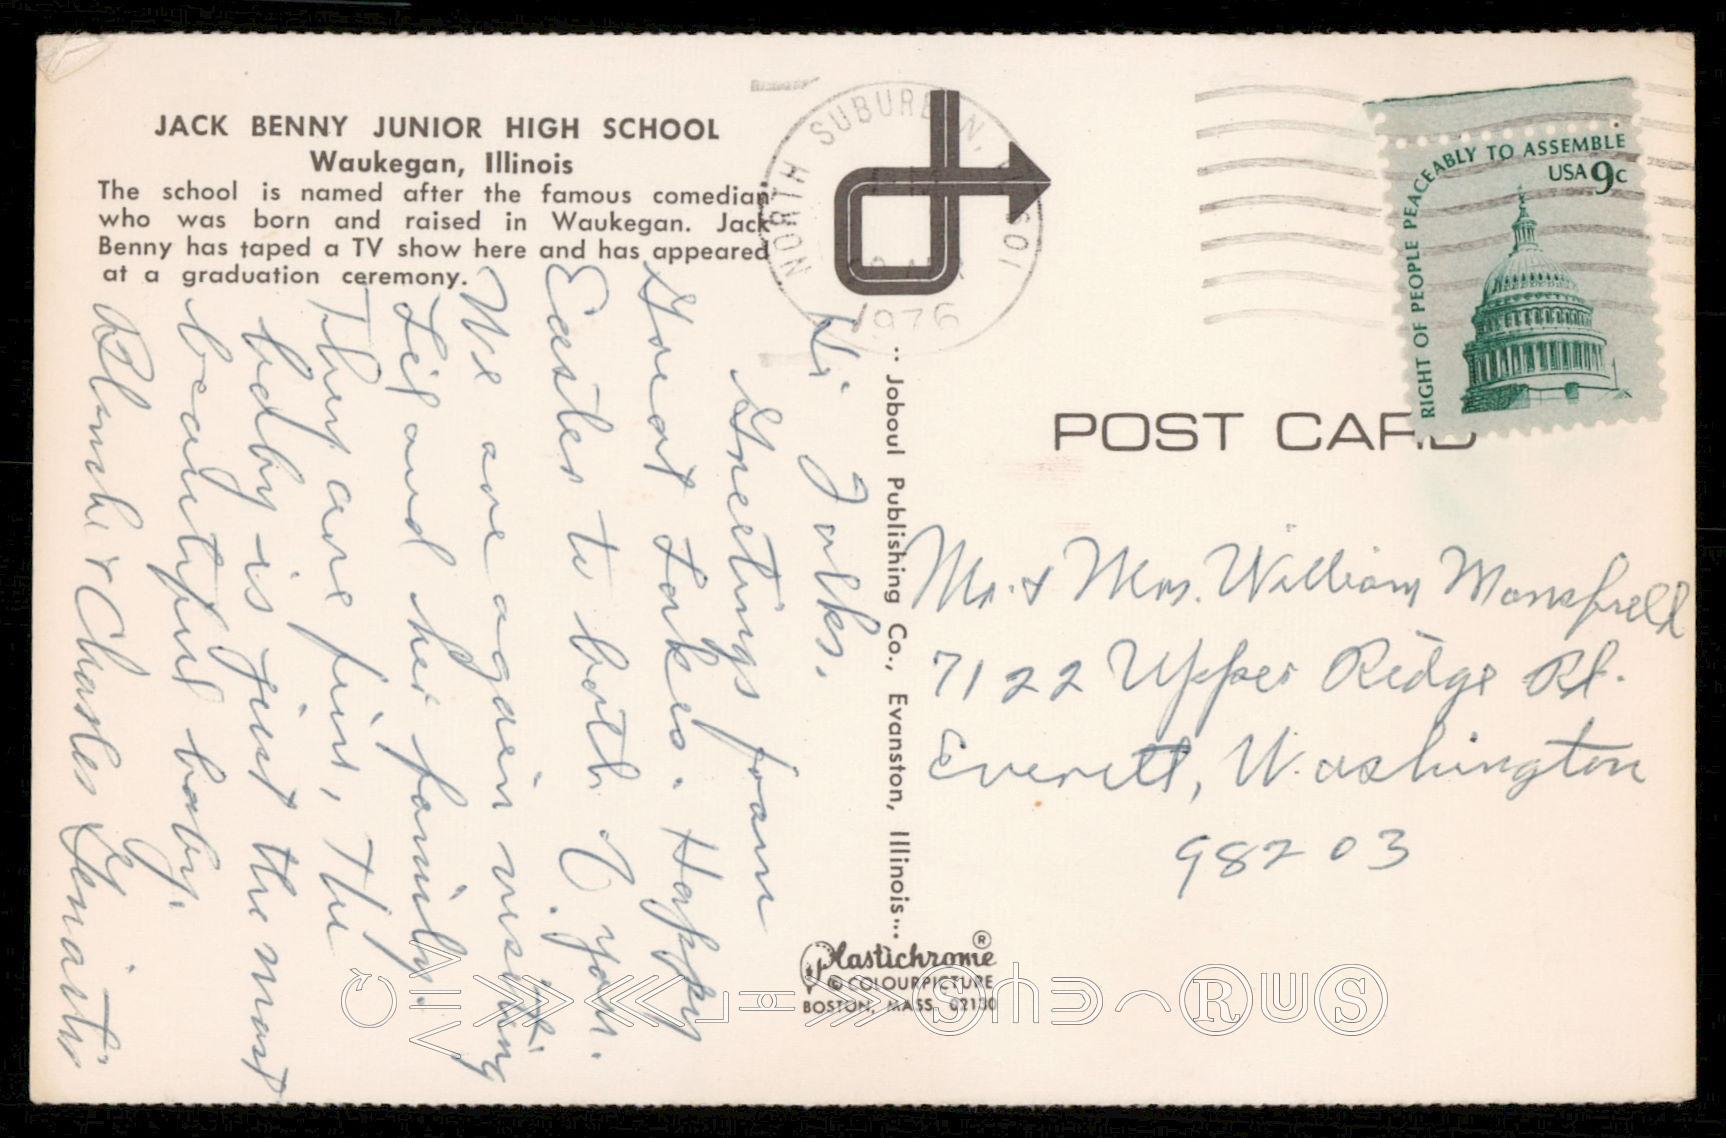 JACK BENNY JUNIOR HIGH SCHOOL
Waukegan, Illinois
The school is named after the famous comedian
who was born and raised in Waukegan. Jack
Benny has taped a TV show here and has appeared
at a graduation ceremony.
Hi Folks.
Greetings from
Great Lakes. Happy
Easter to both of you.
We are again visiting
and her family.
They are fine, the
baby is just the most
beautiful baby.
& Charles
·· Joboul Publishing Co., Evanston, Illinois ··
Plastichrome ®
© COLOURPICTURE
BOSTON, MASS. 02130
NORTH SUBURBAN, 
1976
RIGHT OF PEOPLE PEACEABLY TO ASSEMBLE
USA 9c
POST CARD
Mr. & Mrs. William Mansfield
7122 Upper Ridge Rd.
Everett, Washington
98203
R U S